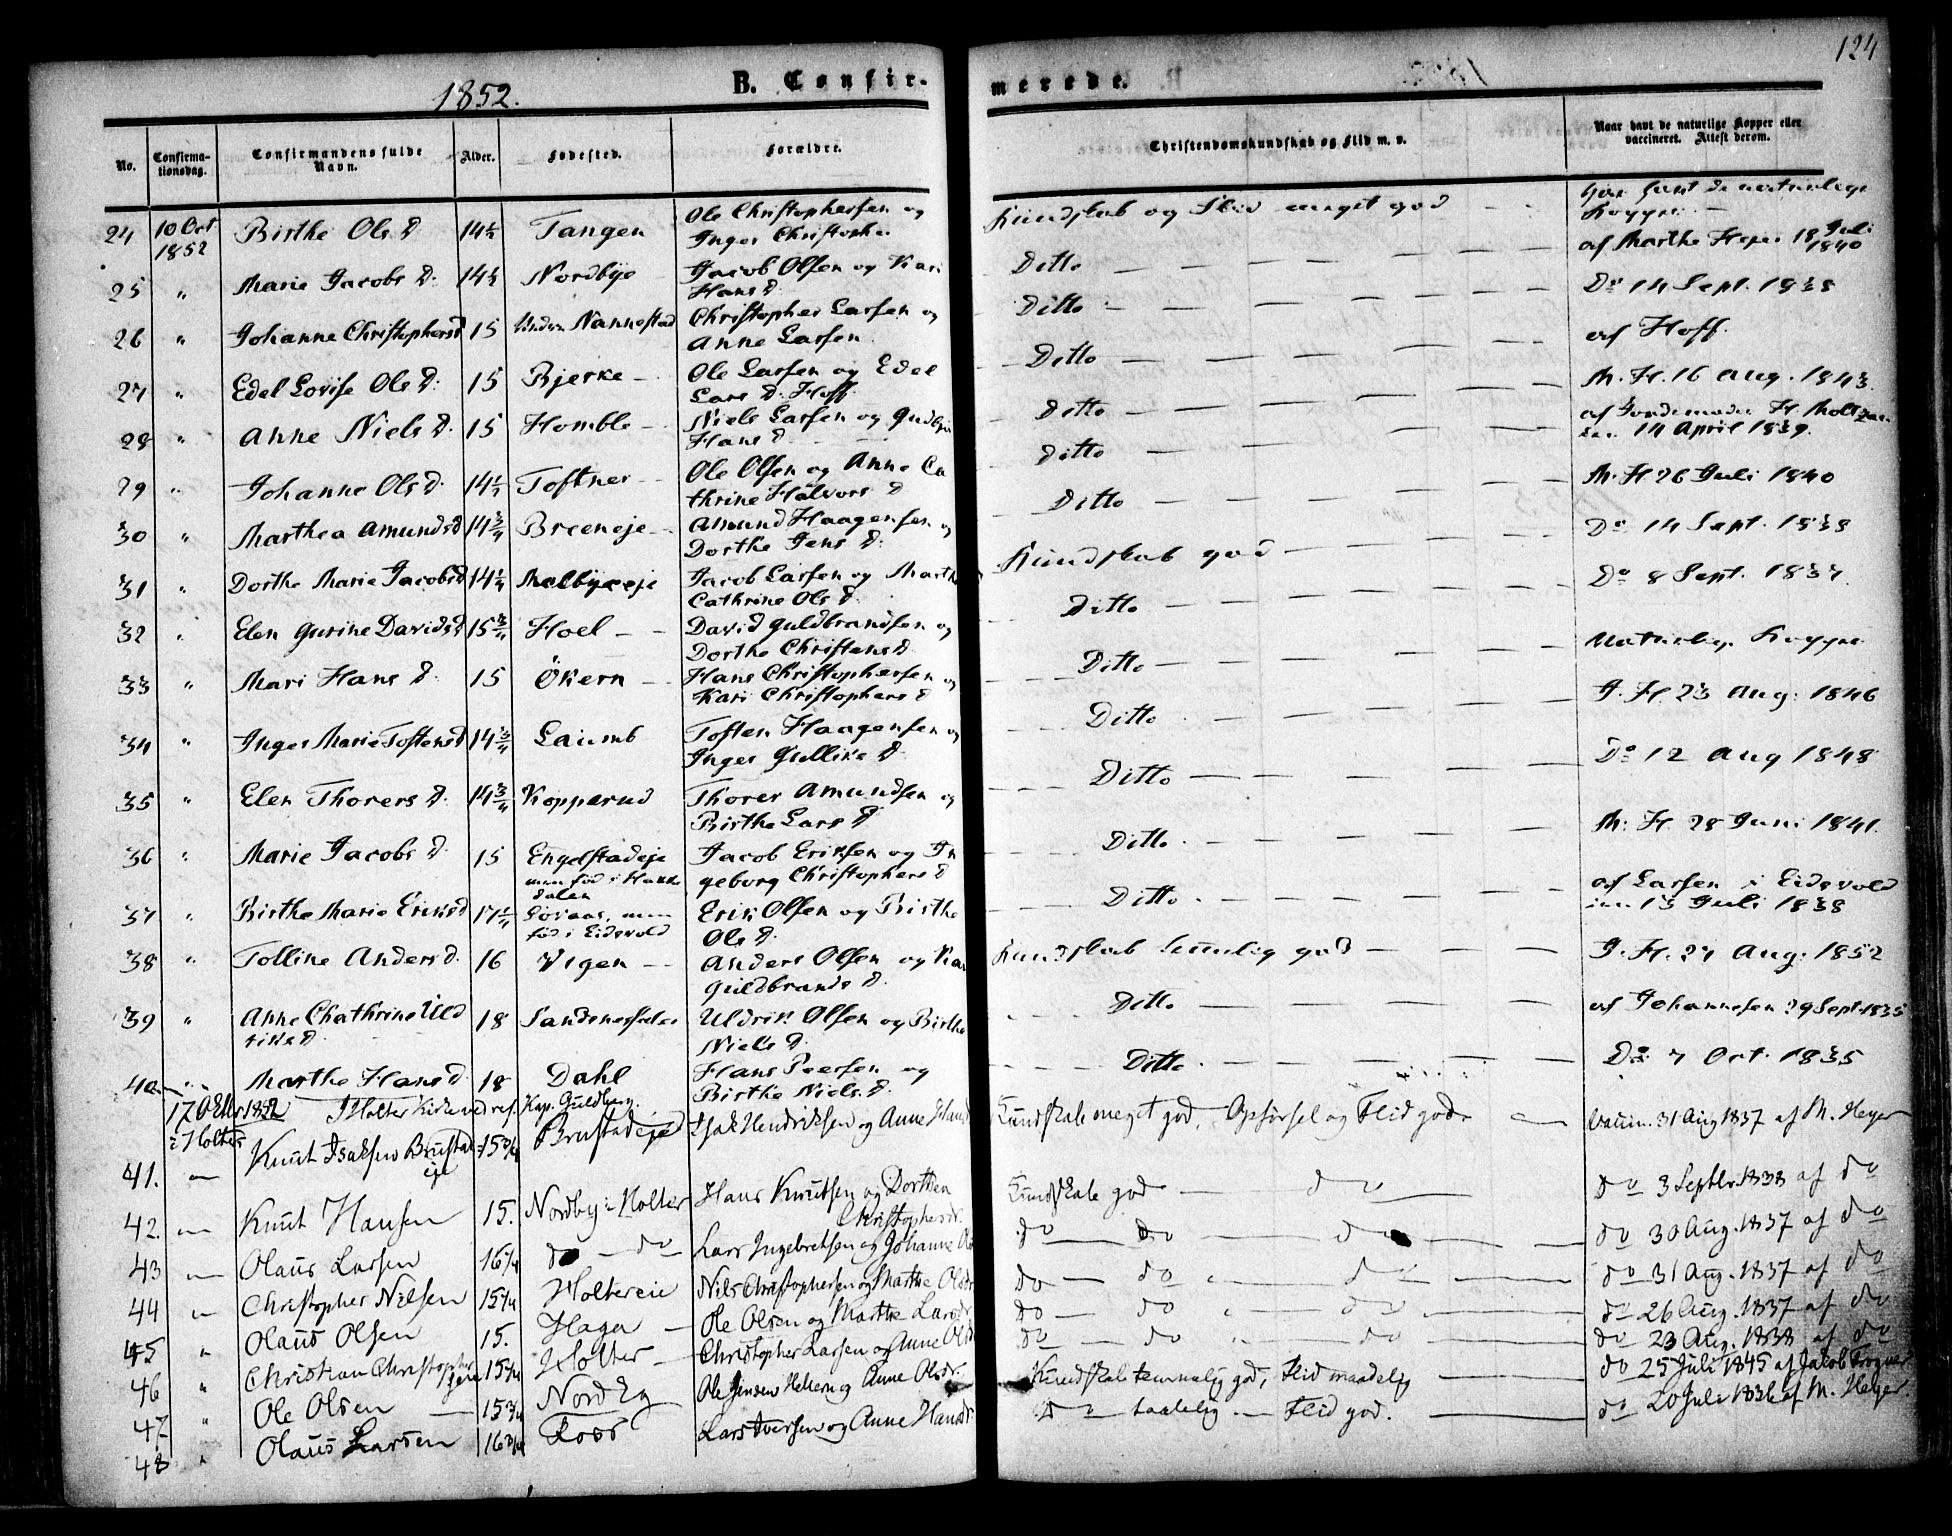 124
1852.
B. Confir-
merede.
No.
Confirma-
tionsdag.
Confirmandens fulde
Navn.
Alder.
Fødested.
Forældre.
Christendomskundskab og Flid m. v.
Naar havt de naturlige Kopper eller
vaccineret. Attest derom.
24 10 Oct 1852 Birthe Ols D. 14½ Tangen Ole Christophersen og Inger Christophe Kundskab og Flid meget god
har havt de naturlige Kopper
25 " Marie Jacobs D. 14½ Nordbye Jacob Olsen og Kari Hans D. Ditto af Marthe Heyer 18 Juli 1840
26 " Johanne Christophersd 15 Nannestad Christopher Larsen og Anne Larsen Ditto Do 14 Sept. 1838
27 " Edel Lovise Ols D. 15 Bjerke Ole Larsen og Edel Lars D. Hoff Ditto af Hoff
28 " Anne Niels D. 15 Homble Niels Larsen og Gudbjør Hans D. Ditto M. H. 16 Aug. 1843
29 " Johanne Ols D. 14½ Toftner Ole Olsen og Anne Cathrine Halvors D Ditto af Jordemoder H. 14 April 1839.
30 " Marthea Amunds D 14¾ Breeneje Amund Haagensen og Dorthe Jens D. Ditto M. H 26 Juli 1840
31 " Dorthe Marie Jacobs D 14¼ Melbyeeje Jacob Larsen og Marth Cathrine Ols D. Kundskab god Do 14 Sept. 1838
32 " Elen Gurine Davidsd 15¾ Hoel David Guldbrandsen og Dorthe Christens D Ditto Do 8 Sept. 1837
33 " Mari Hans D. 15 Økern Hans Christophersen og Kari Christophers D Ditto Naturlig. Kopper
34 " Inger Marie Tostensd 14¾ Laumb Tosten Haagensen og Inger Gulliks D. Ditto J. H. 23 Aug. 1846
35 " Elen Thorers D. 14¾ Kopperud Thorer Amundsen og Birthe Lars D Ditto Do 12 Aug 1848
36 " Marie Jacobs D. 15 Engelstadeje men fød i Hakkedalen Jacob Eriksen og Ingeborg Christophers D Ditto M. H. 28 Juni 1841.
37 " Birthe Marie Eriksd 17¼ men fød i Eidsvold Erik Olsen og Birthe Ols D. Ditto af Larsen i Eidsvold 13 Juli 1838
38 " Tolline Anders D. 16 Vigen Anders Olsen og Kar Guldbrands D. Kundskab temmelig god J. H. 27 Aug. 1852
39 " Anne Chathrine Uldriks D. 18 Uldrik Olsen og Birthe Niels D. Ditto af Johannesen 29 Sept 1835
40 " Marthe Hans D. 18 Dahl Hans Peersen og Birthe Niels. D. Ditto Do. 7 Oct. 1835
17 1852 i Holter Kirke ved Kap. Guldberg.
41. i Holter Knut Isaksen Brustadeje 15¾ Brustadeje Isak Hendriksen og Anne Hansd Kundskab meget god, Opførsel og Flid god Vaccin. 31 Aug 1837 af M. Heyer
42. Knut Hansen 15. Nordby i Holter Hans Knutsen og Dorthea Christophersdr. Kundskab god do do 3 Septbr. 1838 af do
43 Olaus Larsen 16¼ do do Lars Ingebretsen og Johanne do do do do 30 Aug. 1837 af do
44 Christopher Nilsen 15¼ Holtereie Nils Christophersen og Marthe Olsdr do do do do 31 Aug. 1837 af do
45 " Olaus Olsen 15. Haga Ole Olsen og Marthe Larsdr do do do do 26 Aug. 1837 af do
46 " Christian Christophersen 15¼ Holter Christopher Larsen og Anne Olsdr do do do do 23 Aug. 1838 af do
47. " Ole Olsen 15¾ Nordby Ole Jensen og Anne Olsdr. Kundskab temmelig god, Flid maadelig do 25 Juli 1845 af Jakob
48 " Olaus Larsen 16¾ Lars Iversen og Anne Hansdr. Do taalelig Flid god. do 20 Juli 1836 af M. Heyer.